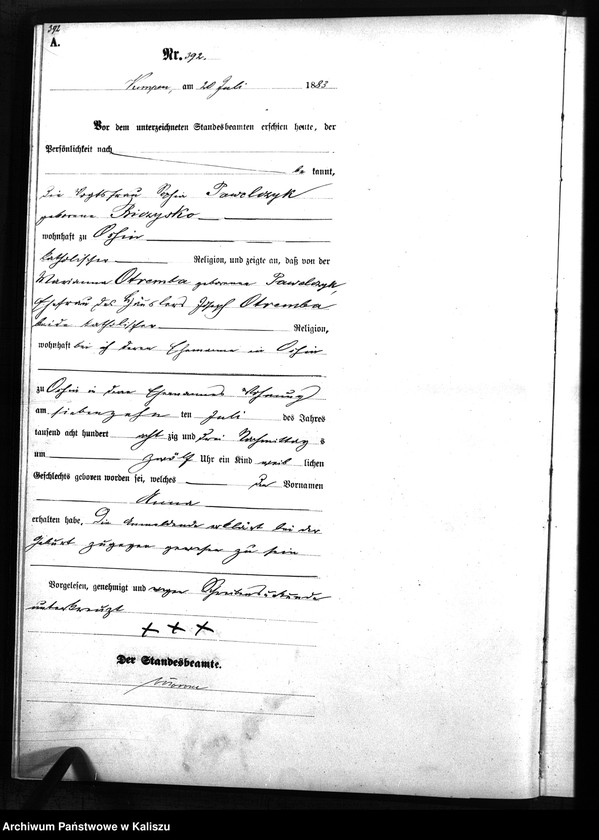 392
A.
Nr. 392.
Kempen, am 20 Juli 1883
Vor dem unterzeichneten Standesbeamten erschien heute, der
Persönlichkeit nach
be kannt,
die Vogtsfrau Sofia Pawelczyk
geborene
wohnhaft zu Oshin
katholischer Religion, und zeigte an, daß von der
Marianna Otremba geborenen Pawelczyk,
Ehefrau des Häuslers Joseph Otremba
beide katholischer Religion,
wohnhaft bei ihrem Ehemanne in Oshin
zu Oshin in ihres Ehemannes Wohnung
am siebenzehn ten Juli des Jahres
tausend acht hundert acht zig und drei Nachmittag s
um zwölf Uhr ein Kind weib lichen
Geschlechts geboren worden sei, welches den Vornamen
Anna
erhalten habe. Die Anmeldende erklärt bei der
Geburt zugegen gewesen zu sein
Vorgelesen, genehmigt und wegen Schreibensunkunde
unterkreuzt
+ + +
Der Standesbeamte.
Archiwum Państwowe w Kaliszu